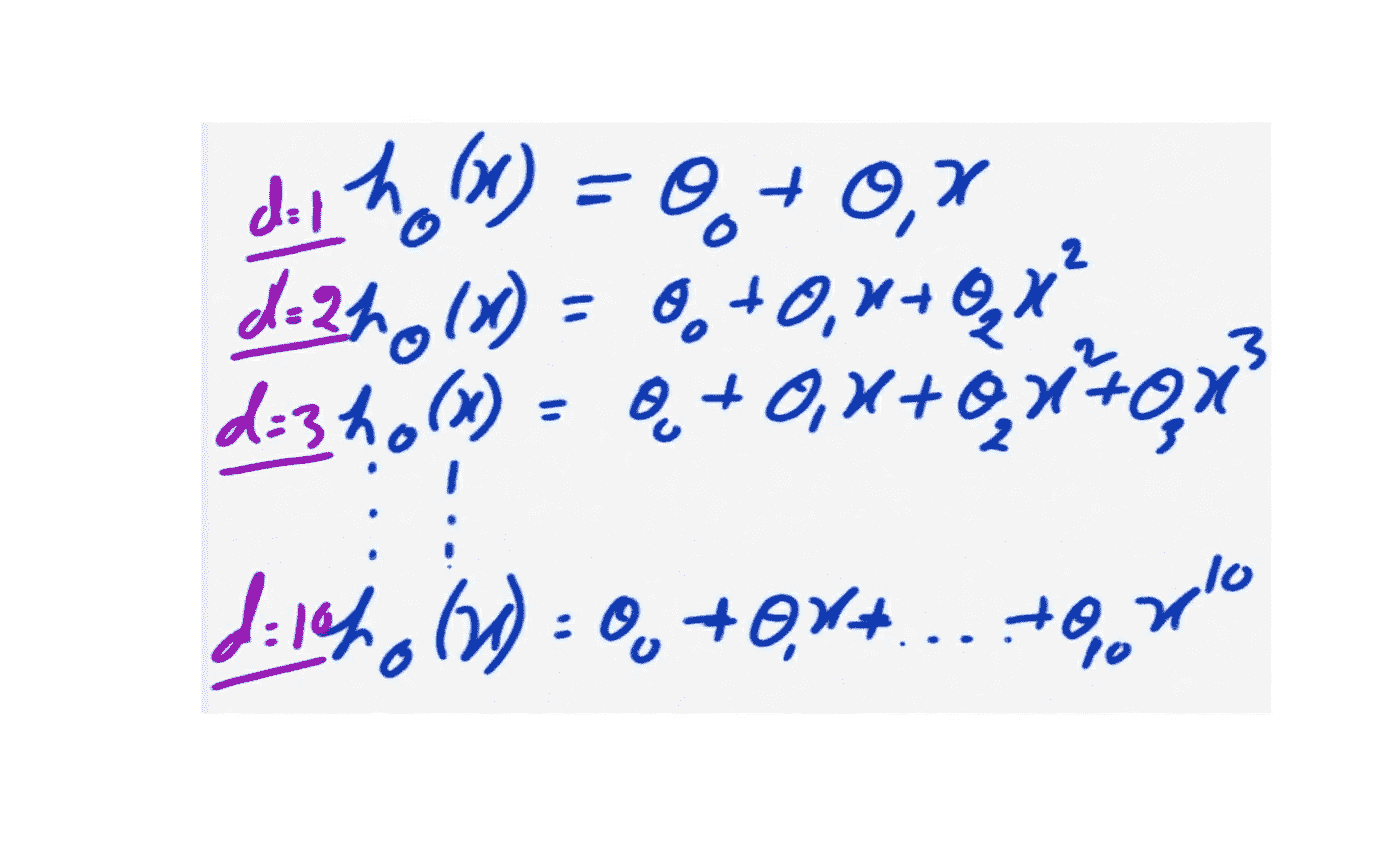 d=1 h_θ(x) = θ₀ + θ₁x
d=2 h_θ(x) = θ₀ + θ₁x + θ₂x²
d=3 h_θ(x) = θ₀ + θ₁x + θ₂x² + θ₃x³
d=10 h_θ(x) = θ₀ + θ₁x + .... + θ₁₀x¹⁰